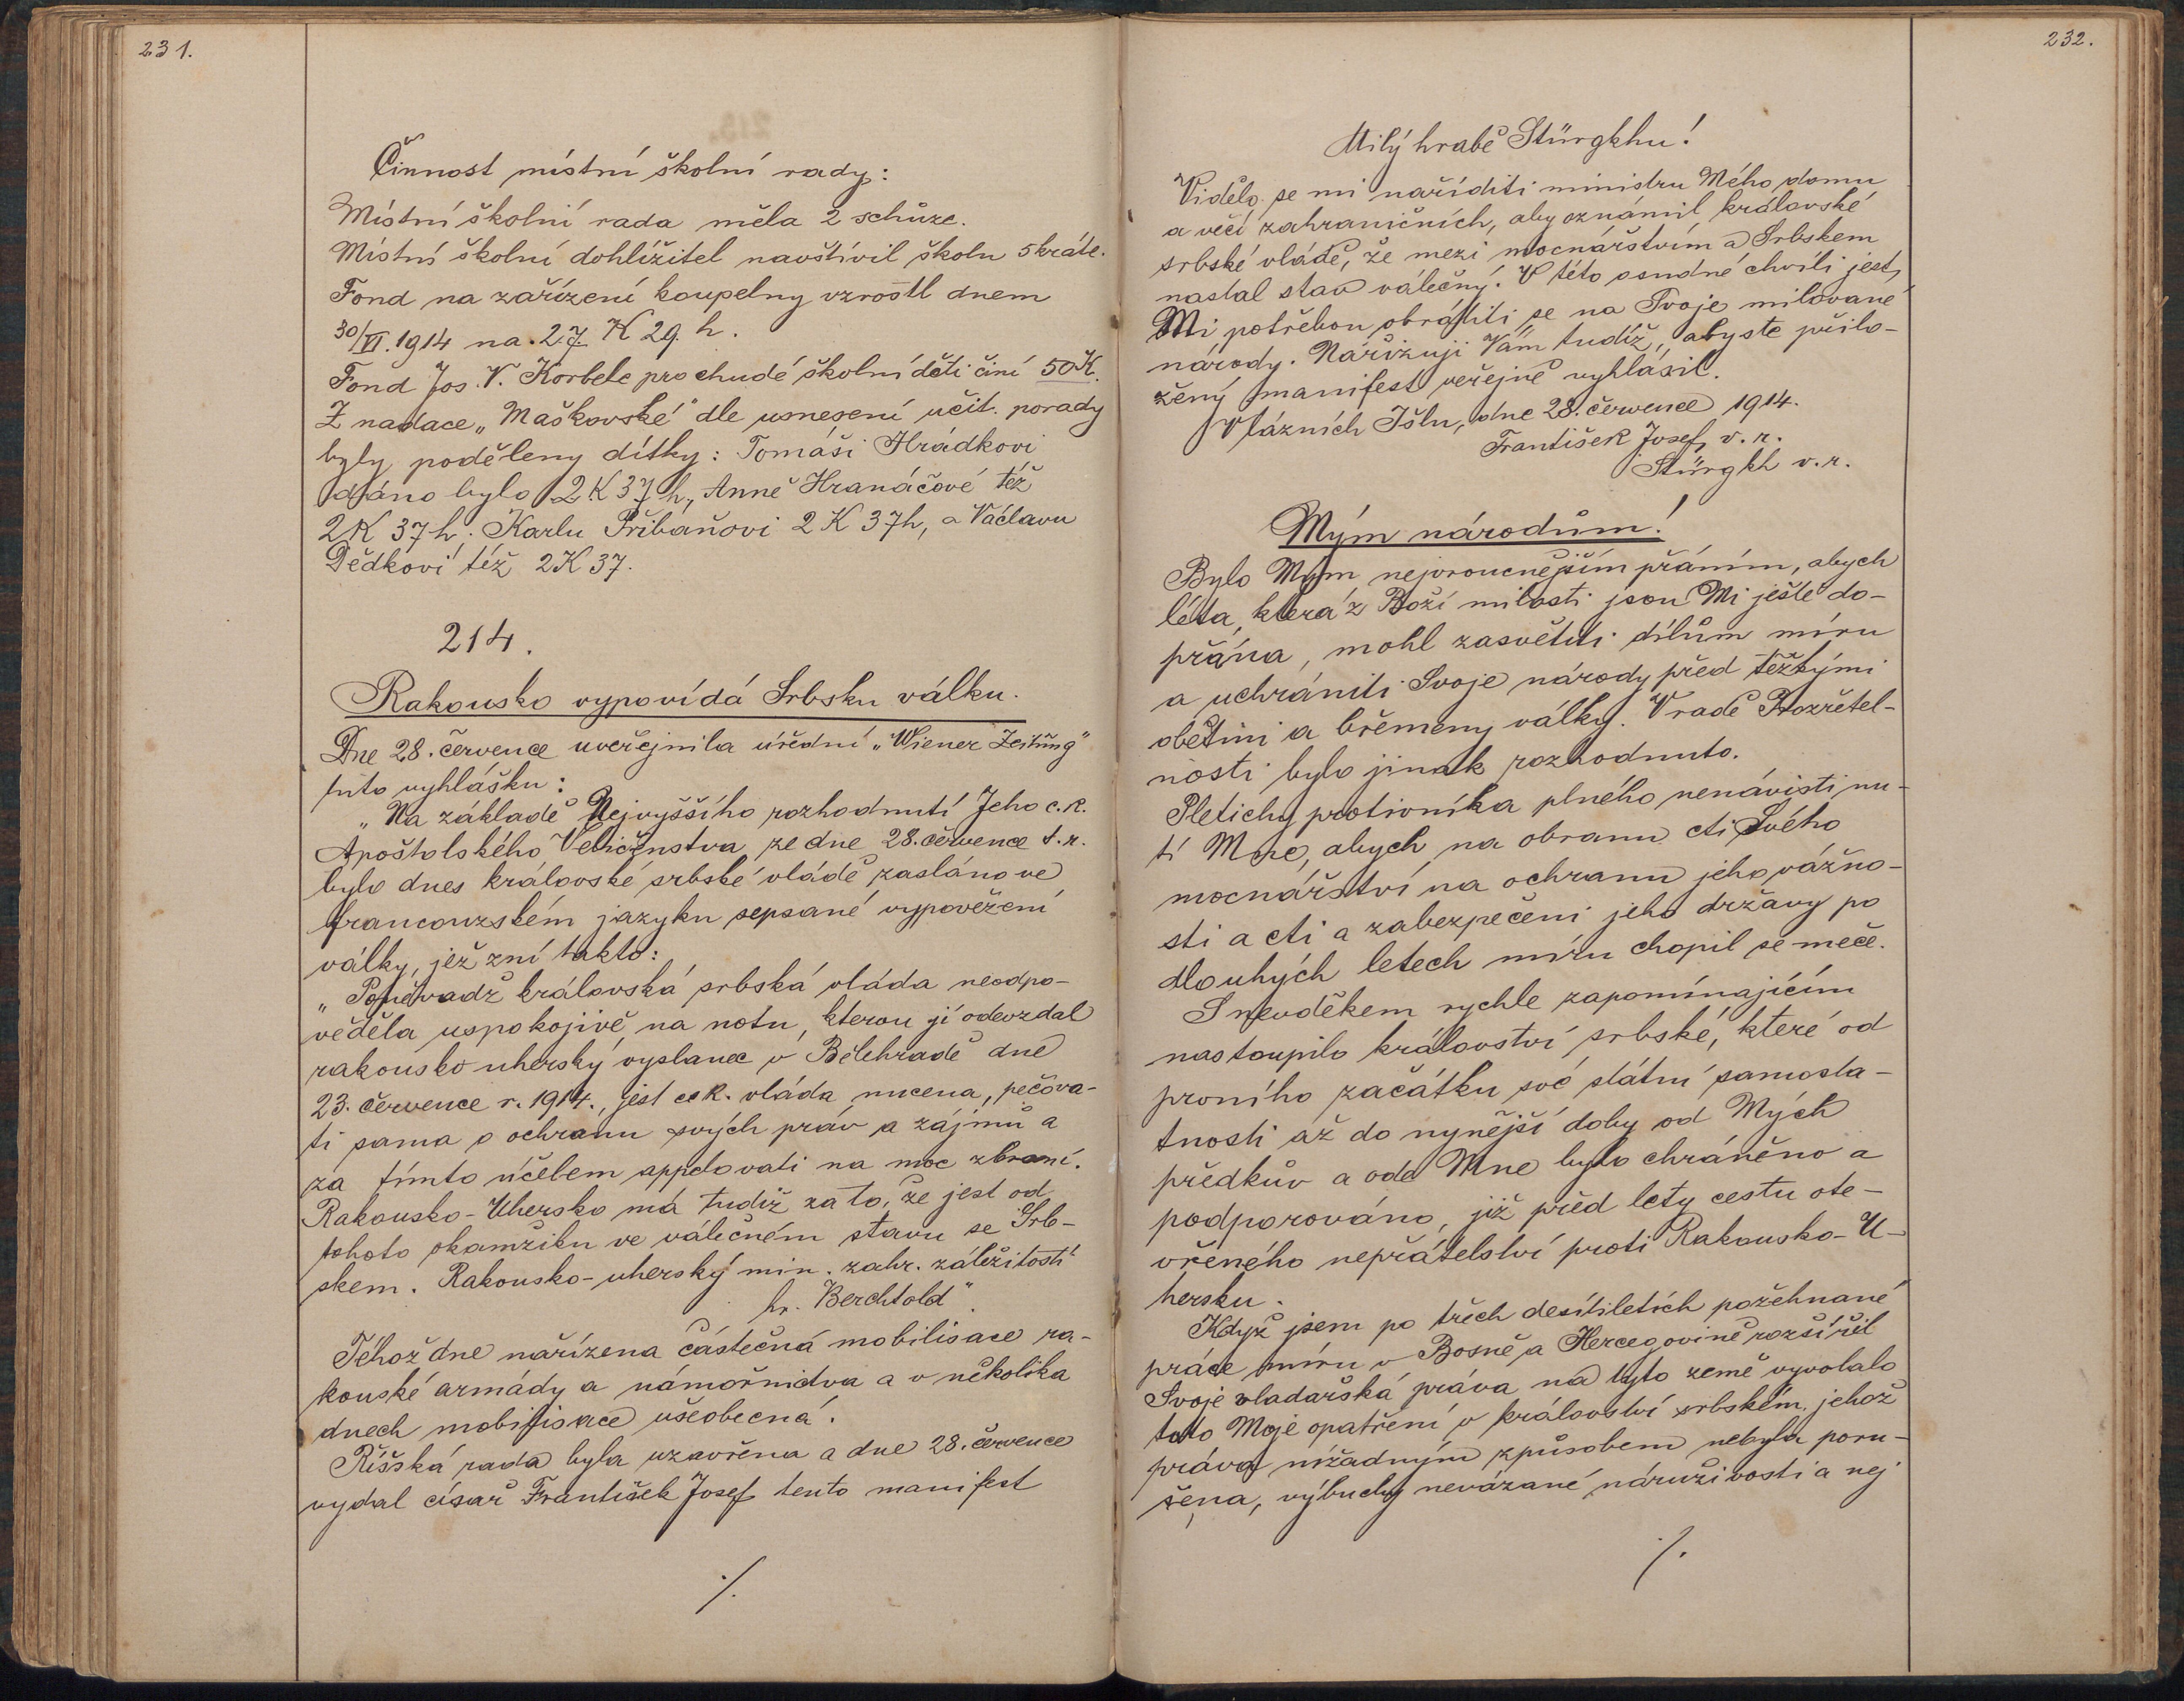 231.
Činnost místní školní rady:
Místní školní rada měla 2 schůze.
Místní školní dohlížitel navštívil školu 5kráte.
Fond na zařízení koupelny vzrostl dnem
30/VI. 1914 na 27 K 29 h.
Fond Jos. V. Korbele pro chudé školní děti činí 50 K.
Z nadace „Maškovské" dle usnesení učit. porady
byly poděleny dítky: Tomáši Hrádkovi
dáno bylo 2 K 37 h, Anně Hranáčové též
2 K 37 h. Karlu Přibáňovi 2 K 37h, a Václavu
Dědkovi též 2 K 37.
214.
Rakousko vypovídá Srbsku válku.
Dne 28. července uveřejnila úřední „Wiener Zeitung"
tuto vyhlášku:
„Na základě Nejvyššího rozhodnutí Jeho c. k.
Apoštolského Veličenstva ze dne 28. července t. r.
bylo dnes královské srbské vládě zasláno ve
francouzském jazyku sepsané vypovězení
války, jež zní takto:
„Poněvadž královská srbská vláda neodpo-
věděla uspokojivě na notu, kterou jí odevzdal
rakousko uherský vyslanec v Bělehradě dne
23. července r. 1914., jest c. k. vláda nucena, pečova-
ti sama o ochranu svých práv a zájmů a
za tímto účelem appelovati na moc zbraní.
Rakousko-Uhersko má tudíž za to, že jest od
tohoto okamžiku ve válečném stavu se Srb-
skem. Rakousko-uherský min. zahr. záležitostí
hr. Berchtold".
Téhož dne nařízena částečná mobilisace ra-
kouské armády a námořnictva a v několika
dnech mobilisace všeobecná.
Říšská rada byla uzavřena a dne 28. července
vydal císař František Josef tento manifest
./.
232.
Milý hrabě Stürgkhu!
Vidělo se mi naříditi ministru Mého domu
a věcí zahraničních, aby oznámil královské
srbské vládě, že mezi mocnářstvím a Srbskem
nastal stav válečný. V této osudné chvíli jest
Mi potřebou obrátiti se na Svoje milované
národy. Nařizuji Vám tudíž, abyste přilo-
žený manifest veřejně vyhlásil.
V lázních Išlu, dne 28. července 1914.
František Josef, v. r.
Stürgkh v. r.
Mým národům!
Bylo Mým nejvroucnějším přáním, abych
léta, která z Boží milosti jsou Mi ještě do-
přána, mohl zasvětiti dílům míru
a uchrániti Svoje národy před těžkými
obětmi a břemeny války. V radě Prozřetel-
nosti bylo jinak rozhodnuto.
Pletichy protivníka plného nenávisti nu-
tí Mne, abych na obranu cti Svého
mocnářství na ochranu jeho vážno-
sti a cti a zabezpečení jeho državy po
dlouhých letech míru chopil se meče.
S nevděkem rychle zapomínajícím
nastoupilo království srbské, které od
prvního začátku své státní samosta-
tnosti až do nynější doby od Mých
předkův a ode Mne bylo chráněno a
podporováno, již před lety cestu ote-
vřeného nepřátelství proti Rakousko-U-
hersku.
Když jsem po třech desítiletích požehnané
práce míru v Bosně a Hercegovině rozšířil
Svoje vladařská práva na tyto země vyvolalo
toto Moje opatření v království srbském, jehož
práva nižádným způsobem nebyla poru-
šena, výbuchy nevázané náruživosti a nej
./.